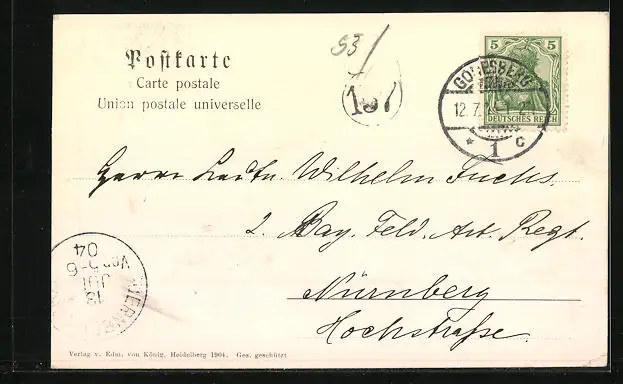 Postkarte
Carte postale
Union postale universelle
53/
137
5
DEUTSCHES REICH
GODESBERG
12.7.
1 c
Herrn Leutn. Wilhelm Fuchs.
2. Bay. Feld. Art. Regt.
Nürnberg
Hochstraße.
NUERNBERG
13
JUL
Vor 5-6
04
Verlag v. Edm. von König, Heidelberg 1904. Ges. geschützt